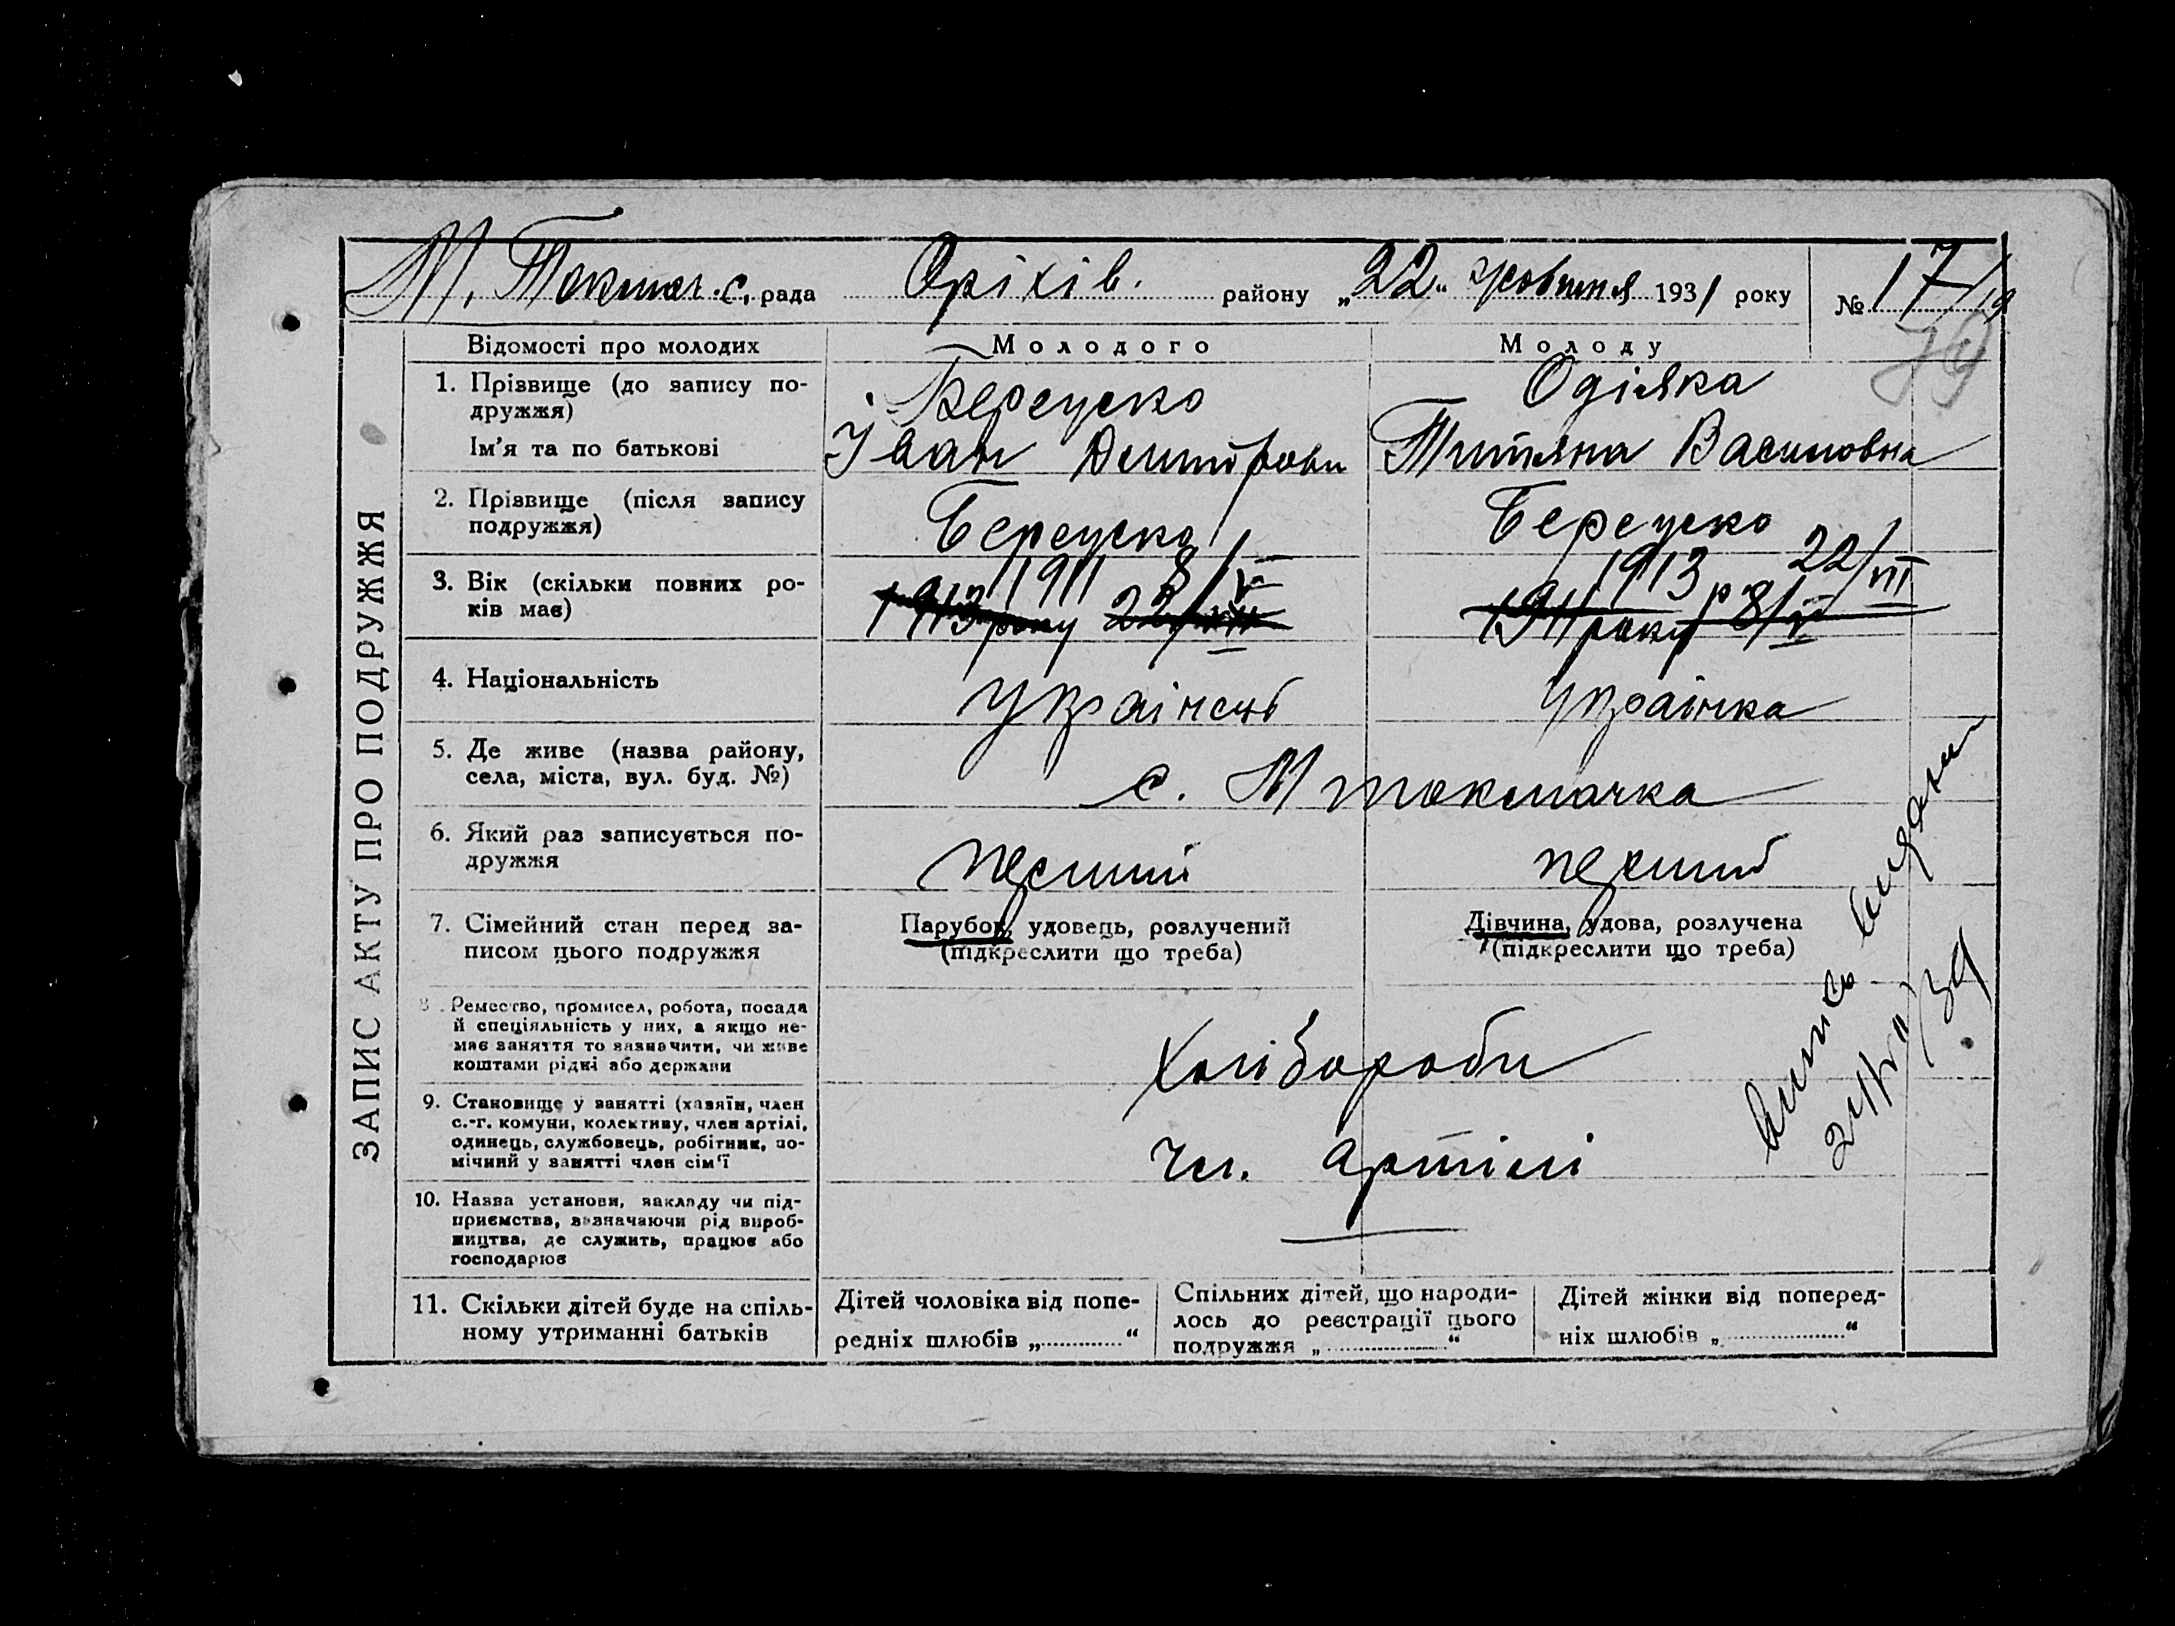 М. Токмач. с. рада Оріхів. району „22" жовтня 1931 року № 17/
ЗАПИС АКТУ ПРО ПОДРУЖЖЯ
Відомості про молодих Молодого Молоду
1. Прізвище (до запису по-
дружжя)
Берецско Одіяка
Ім'я та по батькові
Іван Дмитрови Титяна Василовна
2. Прізвище (після запису
подружжя)
Берецско Берецско
3. Вік (скільки повних ро-
ків має)
1911 8/V 1913 р 22/VII
1913 року 22/VII 1911 року 8/V
4. Національність українець українка
5. Де живе (назва району,
села, міста, вул. буд. №)
с. М токмачка
6. Який раз записується по-
дружжя
перший перший
7. Сімейний стан перед за-
писом цього подружжя
Парубок, удовець, розлучений
(підкреслити що треба)
Дівчина, удова, розлучена
(підкреслити що треба)
8. Ремество, промисел, робота, посада
й спеціяльність у них, а якщо не-
має заняття то зазначити, чи живе
коштами рідні або держави
Хлібороби
9. Становище у занятті (хазяїн, член
с.-г. комуни, колективу, член артілі,
одинець, службовець, робітник, по-
мічний у занятті член сім'ї
чл. артілі
10. Назва установи, закладу чи під-
приємства, зазначаючи рід вироб-
ництва, де служить, працює або
господарює
11. Скільки дітей буде на спіль-
ному утриманні батьків
Дітей чоловіка від попе-
редніх шлюбів „ "
Спільних дітей, що народи-
лось до реєстрації цього
подружжя „ "
Дітей жінки від поперед-
ніх шлюбів „ "